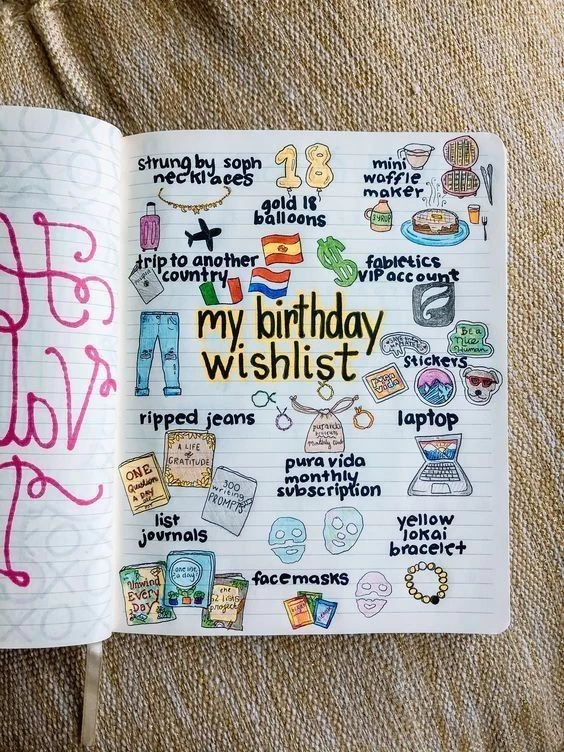 strung by soph
necklaces
18
gold 18
balloons
mini
waffle
maker
SYRUP
trip to another
country
$
fabletics
VIP account
my birthday
wishlist
Be a
Nice
Human
stickers
ripped jeans
pura vida
Monthly Club
pura vida
monthly
subscription
laptop
A LIFE
of
GRATITUDE
ONE
Question
A DAY
300
writing
PROMPTS
list
journals
Unwind
Every
Day
one line
a day
the
52 lists
project
facemasks
yellow
lokai
bracelet